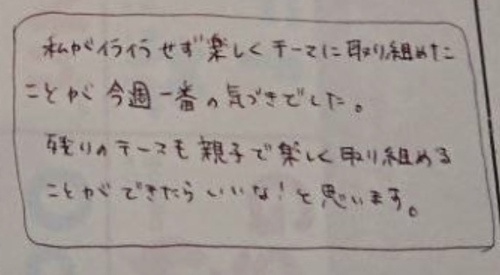 私がイライラせず楽しくテーマに取り組めた
ことが今週一番の気づきでした。
残りのテーマも親子で楽しく取り組める
ことができたらいいな!と思います。